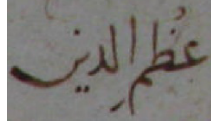 عظم الدين